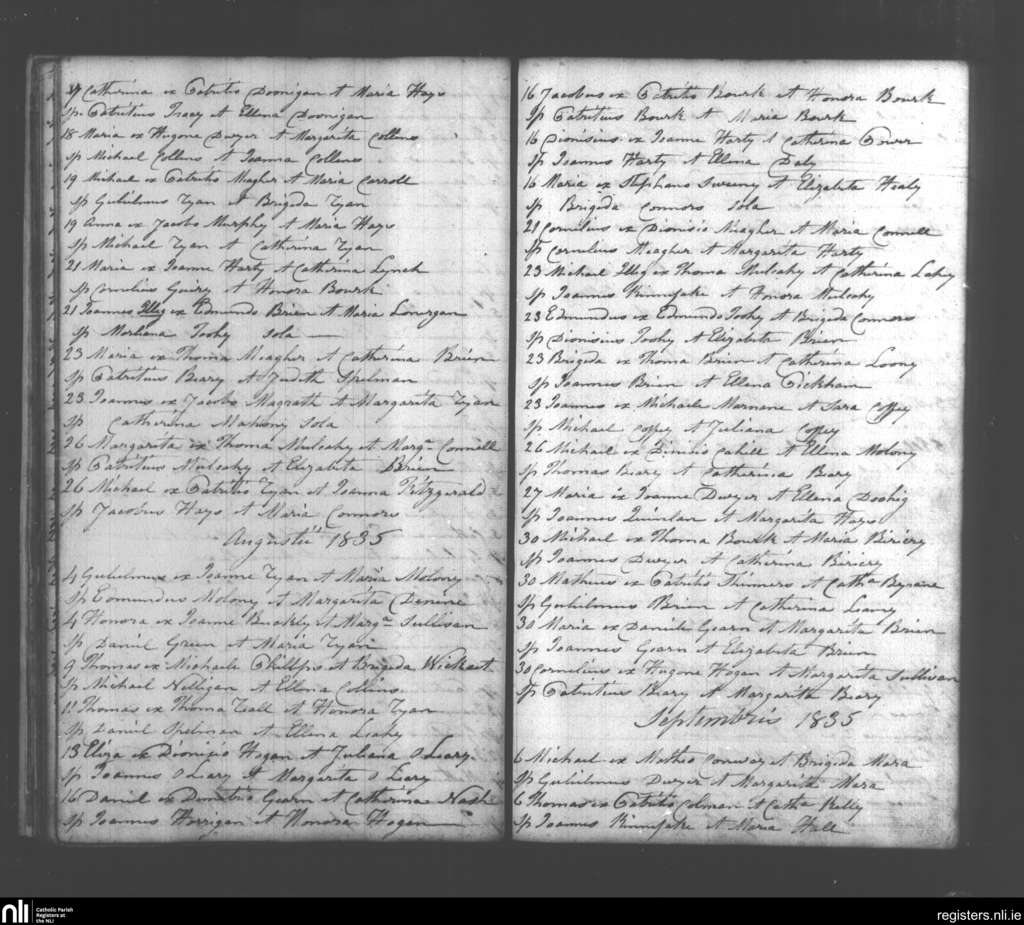 17 Catherina ex Patritio Doonigan et Maria Hays
Sp Patritius Tracy et Ellena Doonigan
18 Maria ex Hugone Dwyer et Margarita Collins
Sp Michael Collens et Joanna Collens
19 Michael ex Patritio Meagher et Maria Carroll
Sp Gulielmus Ryan et Brigida Ryan
19 Anna ex Jacobo Murphy et Maria Hays
Sp Michael Ryan et Catherina Ryan
21 Maria ex Joanne Harty et Catherina Lynch
Sp Cornelius Guiry et Honora Bourk
21 Joannes Illeg ex Edmundo Brien et Maria Lonergan
Sp Moriana Toohy Sola
23 Maria ex Thoma Meagher et Catherina Brien
Sp Patritius Beary et Judith Spelman
23 Joannes ex Jacobo Magrath et Margarita Ryan
Sp Catherina Mahony Sola
26 Margarita ex Thoma Mulcahy et Marga Connell
Sp Patritius Mulcahy et Elizabeta Brien
26 Michael ex Patritio Ryan et Joanna Fitzgerald
Sp Jacobus Hays et Maria Connors
Augustii 1835
4 Gulielmus ex Joanne Ryan et Maria Molony
Sp Edmundus Molony et Margarita Denine
4 Honora ex Joanne Buckly et Marga Sullivan
Sp Daniel Green et Maria Ryan
9 Thomas ex Michaele Phillips et Brigida
Sp Michael Nelligan et Ellena Collins
11 Thomas ex Thoma et Honora Ryan
Sp Daniel et Ellena Leahy
13 Eliza ex Dionisio Hogan et Juliana O Leary
Sp Joannes O Leary et Margarita O Leary
16 Daniel ex Demetrio Gearn et Catherina Nash
Sp Joannes Horrigan et Honora Hogan
16 Jacobus ex Patritio Bourk et Honora Bourk
Sp Patritius Bourk et Maria Bourk
16 Dionisius ex Joanne Harty & Catherina Power
Sp Joannes Harty et Ellena Daly
16 Maria ex Stephano Sweeny et Elizabeta Healy
Sp Brigida Connors Sola
21 Cornelius ex Dionisio Meagher et Maria Connell
Sp Cornelius Meagher et Margarita Harty
23 Michael Illeg ex Thoma Mulcahy et Catherina Lahy
Sp Joannes Kinnefake et Honora Mulcahy
23 Edmundus ex Edmundo Toohy et Brigida Connors
Sp Dionisius Toohy et Elizabeta Brien
23 Brigida ex Thoma Brien et Catherina Loony
Sp Joannes Brien et Ellena Pickham
23 Joannes ex Michaele Marnane et Sara Coffey
Sp Michael Coffey et Juliana Coffey
26 Michael ex Dinisio Cahill et Ellena Molony
Sp Thomas Beary et Catherina Beary
27 Maria ex Joanne Dwyer et Ellena
Sp Joannes Quinlan et Margarita Hays
30 Michael ex Thoma Bourk et Maria
Sp Joannes Dwyer et Catherina
30 Matheus ex Patritio et Catha Byrane
Sp Gulielmus Brien et Catherina Leamy
30 Maria ex Daniele Gearn et Margarita Brien
Sp Joannes Gearn et Elizabeta Brien
30 Cornelius ex Hugone Hogan et Margarita Sullivan
Sp Patritius Beary et Margarita Beary
Septembris 1835
6 Michael ex Matheo Conway et Brigida Mara
Sp Gulielmus Dwyer et Margarita Mara
6 Thomas ex Patritio Colman et Catha Kelly
Sp Joannes Kinnefake et Maria Hall
nli
Catholic Parish
Registers at
the NLI
registers.nli.ie